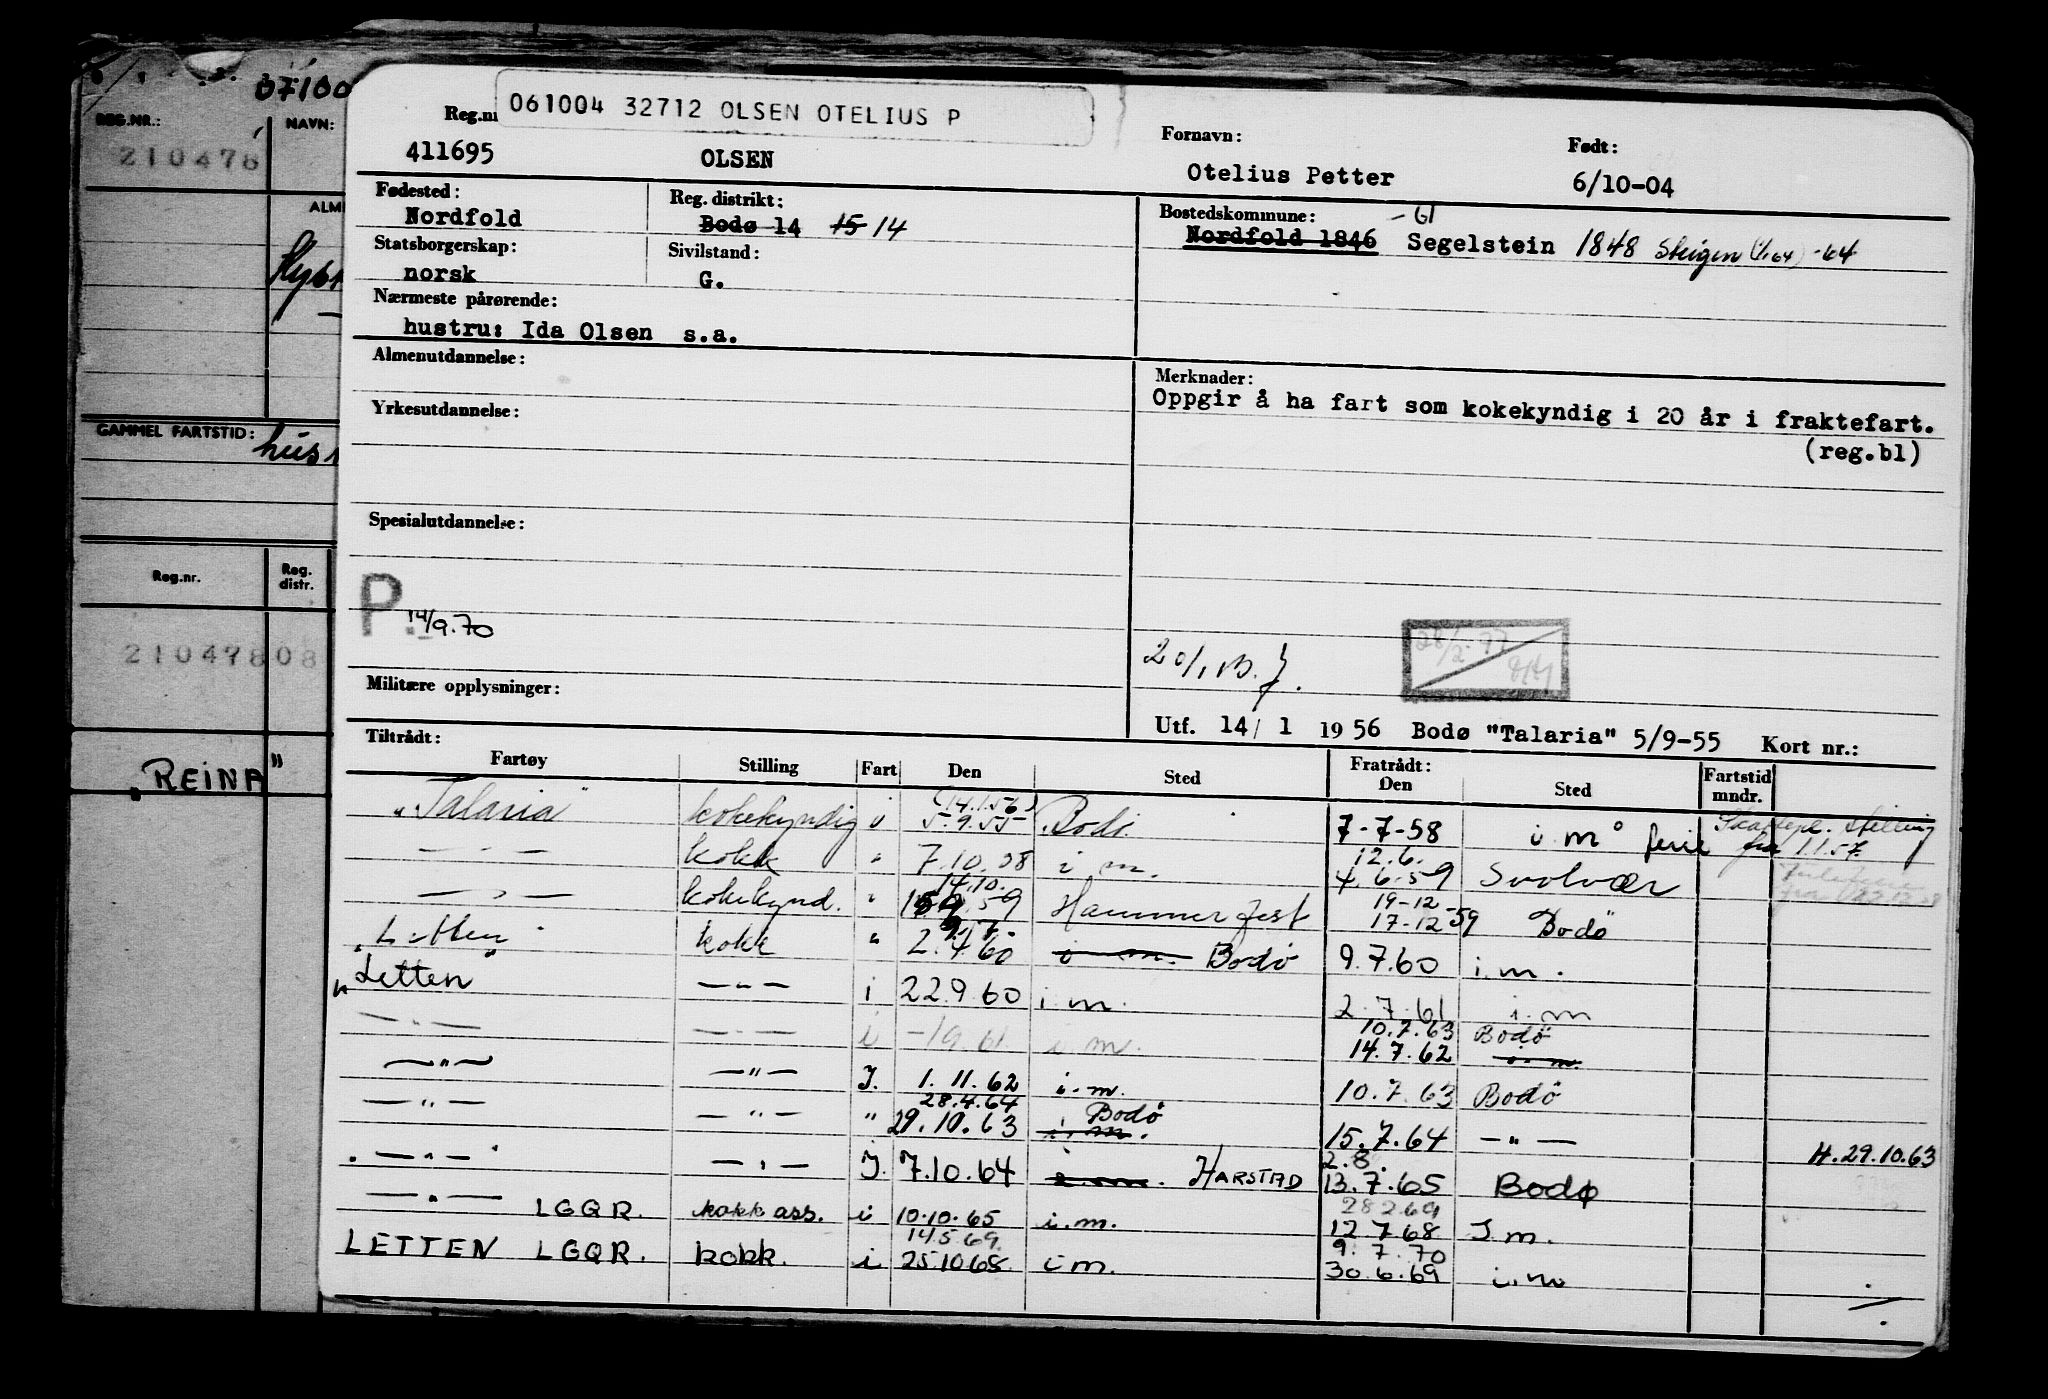 REG.NR.:
NAVN:
210478
GAMMEL FARTSTID:
Reg.nr.
Reg. distr.
21047808
"REINA"
061004 32712 OLSEN OTELIUS P
Fornavn:
Født:
411695
OLSEN
Otelius Petter
6/10-04
Fødested:
Reg. distrikt:
Bostedskommune:
Nordfold
Bodø 14 15 14
Nordfold 1846 -61 Segelstein 1848 Steigen (1/1 64) -64
Statsborgerskap:
Sivilstand:
norsk
G.
Nærmeste pårørende:
hustru: Ida Olsen s.a.
Almenutdannelse:
Merknader:
Oppgir å ha fart som kokekyndig i 20 år i fraktefart.
(reg.bl)
Yrkesutdannelse:
Spesialutdannelse:
P. 14/9.70
Militære opplysninger:
Utf. 14/ 1 1956 Bodø "Talaria" 5/9-55 Kort nr.:
Tiltrådt:
Fratrådt:
Fartøy Stilling Fart Den Sted Den Sted Fartstid mndr.
"Talaria" kokekyndig i (14.1.56) 5.9.55 Bodø 7-7-58 i.m. ferie
fra 1.1.57.
— " — kokk " 7.10.58 i m. 12.6. 4.6.59 Svolvær
— " — kokekynd. " 14.10. 59 Hammerfest 19-12- 17-12-59 Bodø
"Letten" kokk " 2.4.60 i m. Bodø 9.7.60 i.m.
"Letten" — " — i 22.9.60 i.m. 2.7.61 i.m
— " — — " — i -19.61. i.m. 10.7.63 Bodö 14.7.62 i.m.
— " — — " — I. 1.11.62 i.m. 10.7.63 Bodö
— " — — " — " 28.4.64 29.10.63 Bodö i.m. 15.7.64 — " — H.29.10.63
— " — — " — I. 7.10.64 i.m. HARSTAD 2.8. 13.7.65 Bodø
— " — LGQR. kokk ass. i 10.10.65 i.m. 28 2 69 12 7 68 I m.
LETTEN LGQR. kokk. i 14.5.69. 25.10 68. i m. 9.7.70 30.6.69 i.m